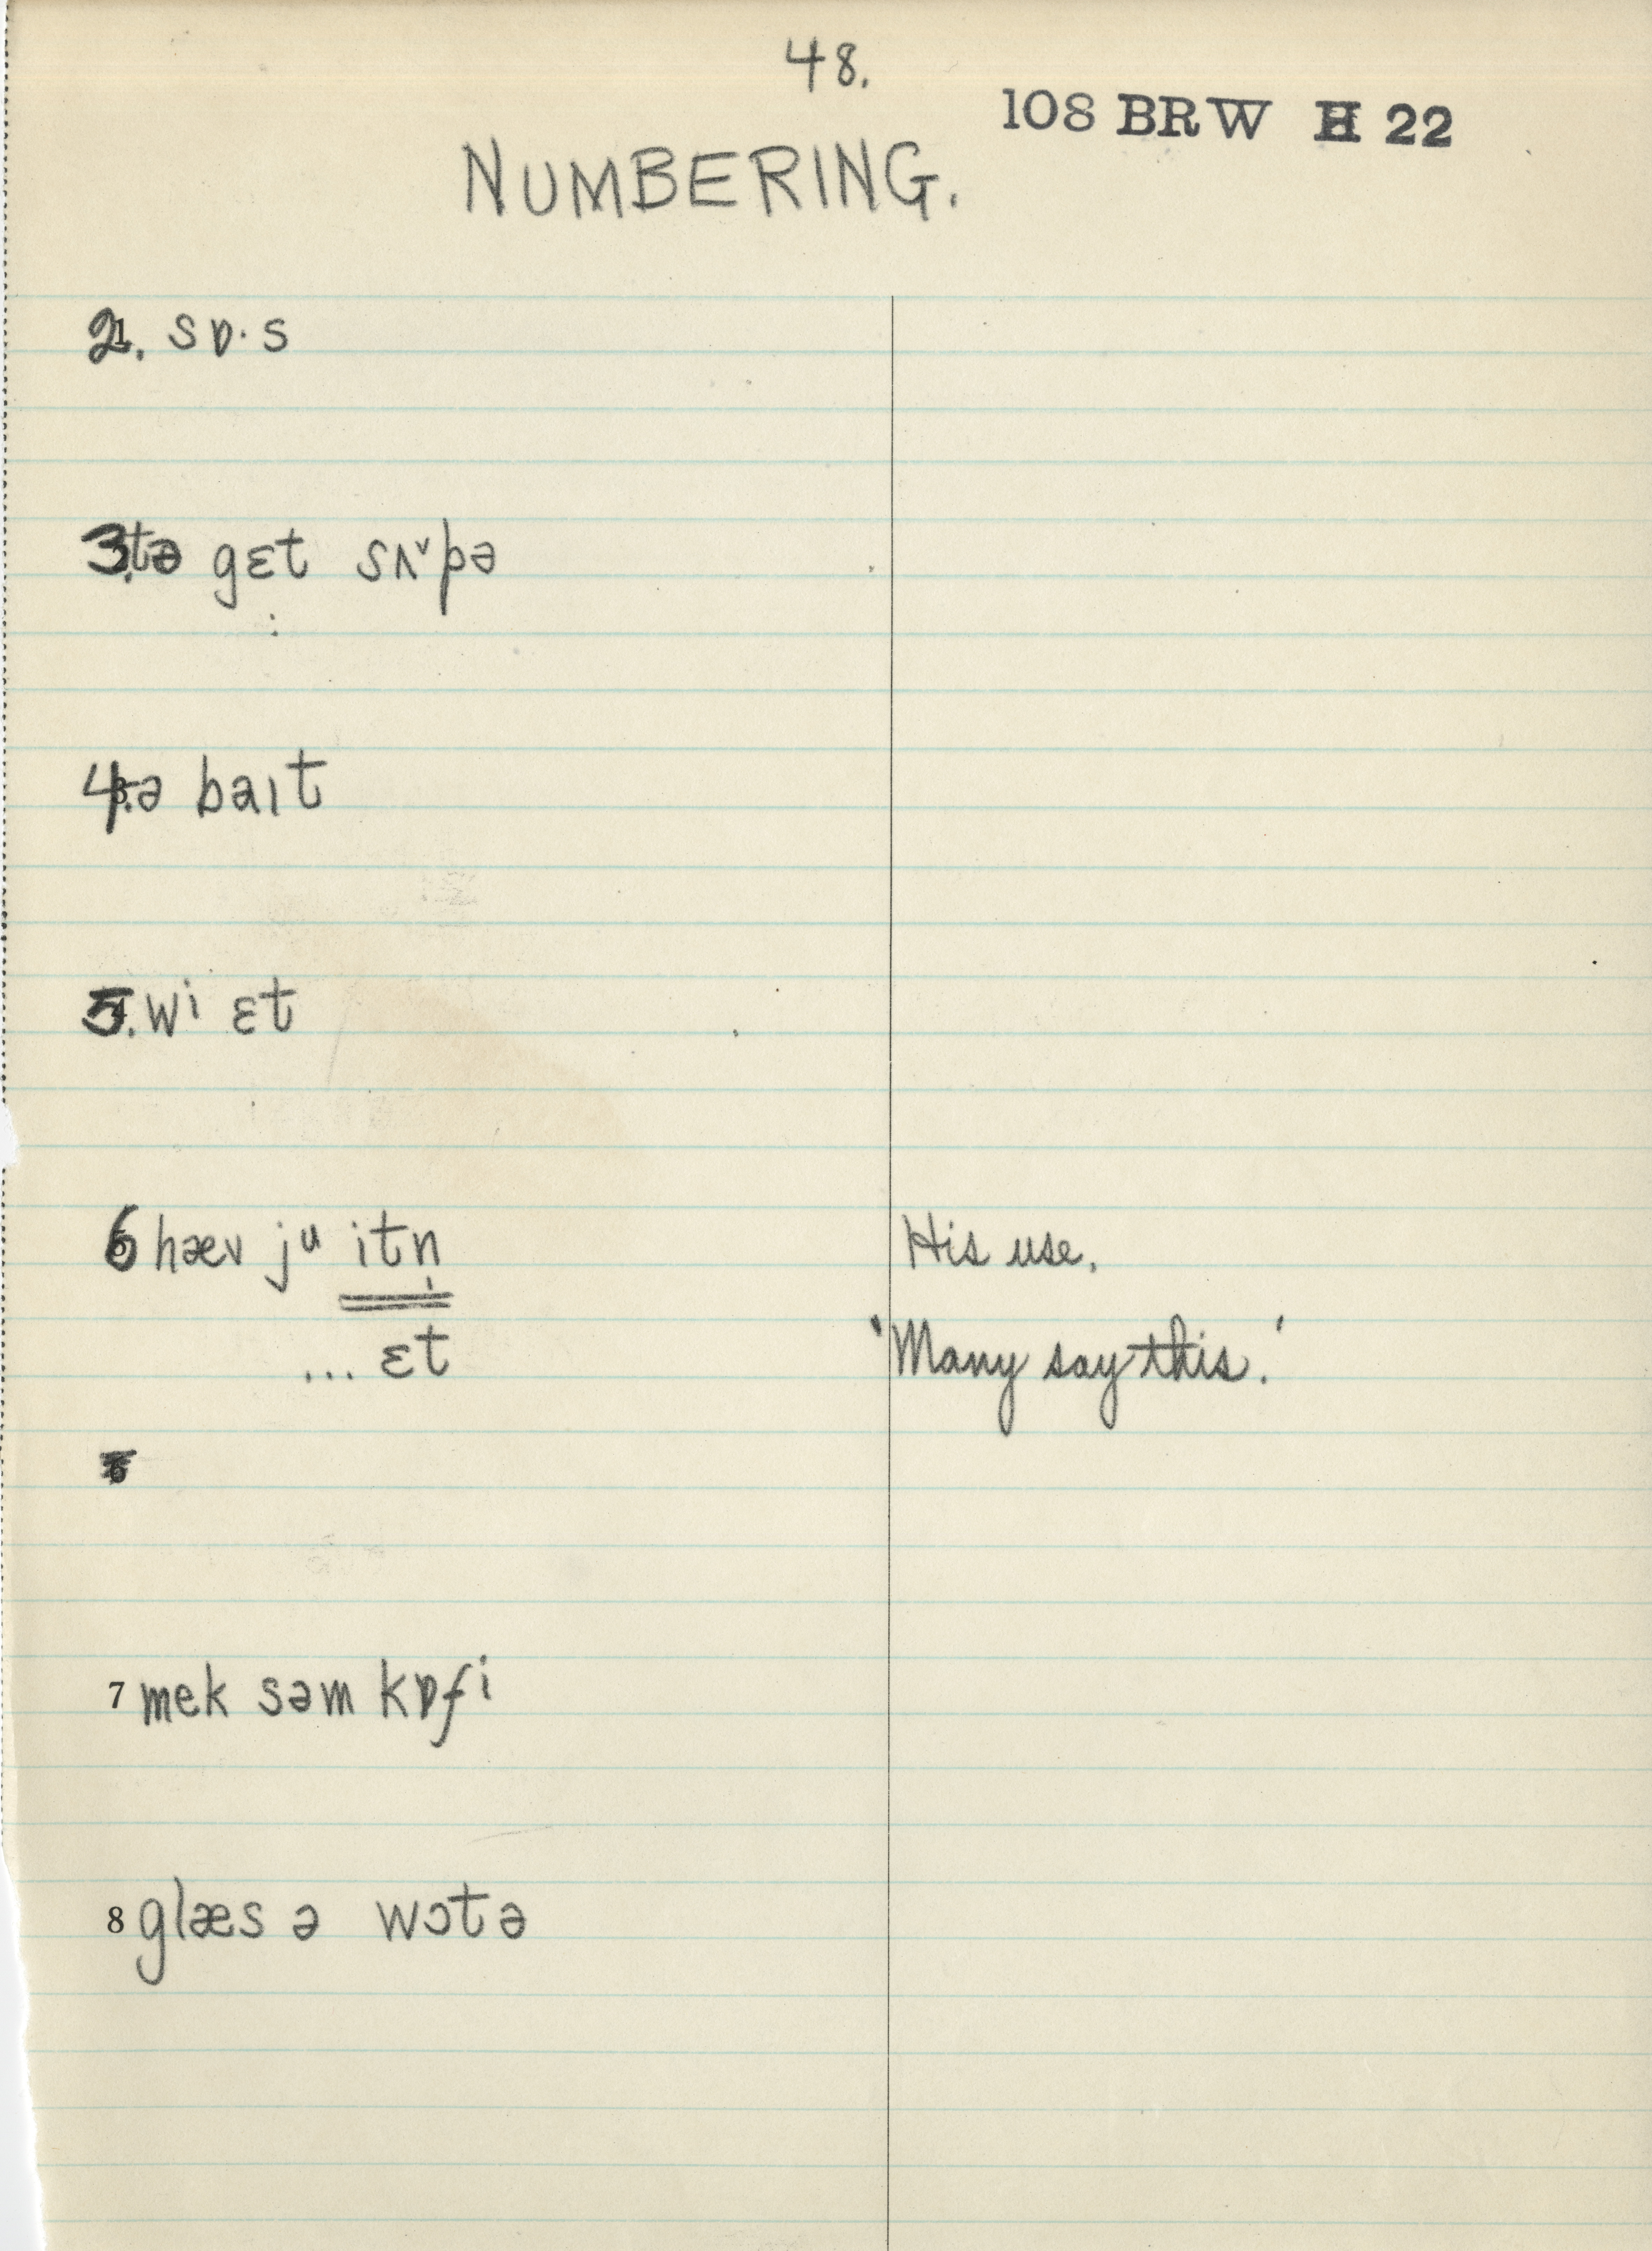 48.
108 BRW H 22
NUMBERING.
2. sɒ·s
3. tə gɛt sʌ˅pə
4. ə baɪt
5. wi ɛt
6 hæv ju itn̩
His use.
... ɛt
'Many say this.'
7 mek səm kɒfi
8 glæs ə wɔtə